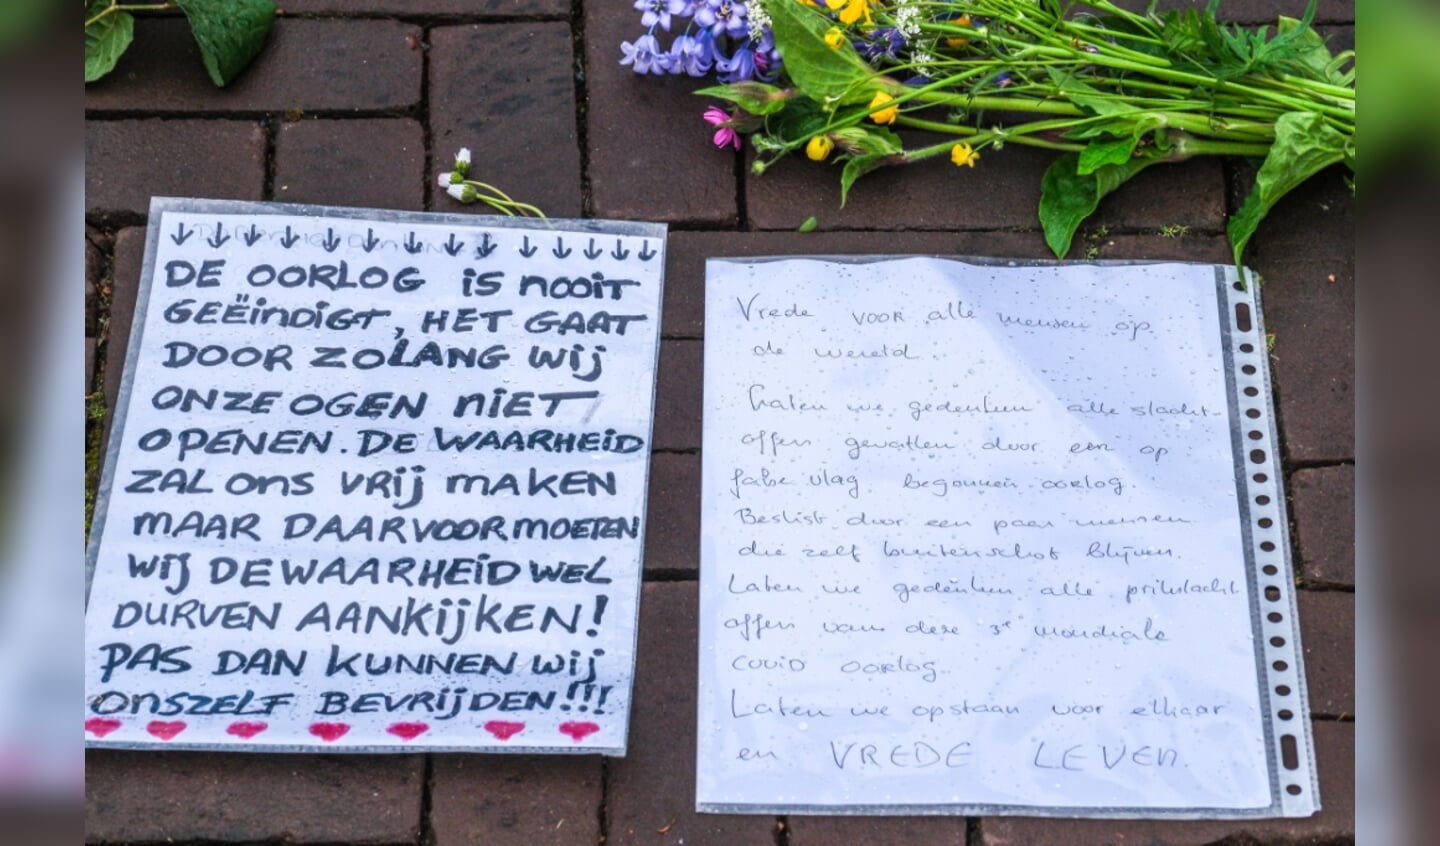 DE OORLOG is nooit
GEËiNDiGT, HET GAAT
DOOR ZOLANG wij
ONZE OGEN NiET
OPENEN. DE WAARHEiD
ZAL ons VRij MAKEN
MAAR DAARVOOR MOETEN
wij DE WAARHEiD WEL
DURVEN AANKijKEN!
PAS DAN KUNNEN wij
ONSZELF BEVRijDEN!!!
Vrede voor alle mensen op
de wereld.
Laten we gedenken alle slacht-
offers gevallen door een op
false vlag begonnen oorlog.
Beslist door een paar mensen
die zelf buitenschot blijven.
Laten we gedenken alle prikslacht
offers van deze 3e mondiale
covid oorlog.
Laten we opstaan voor elkaar
en VREDE LEVEN.